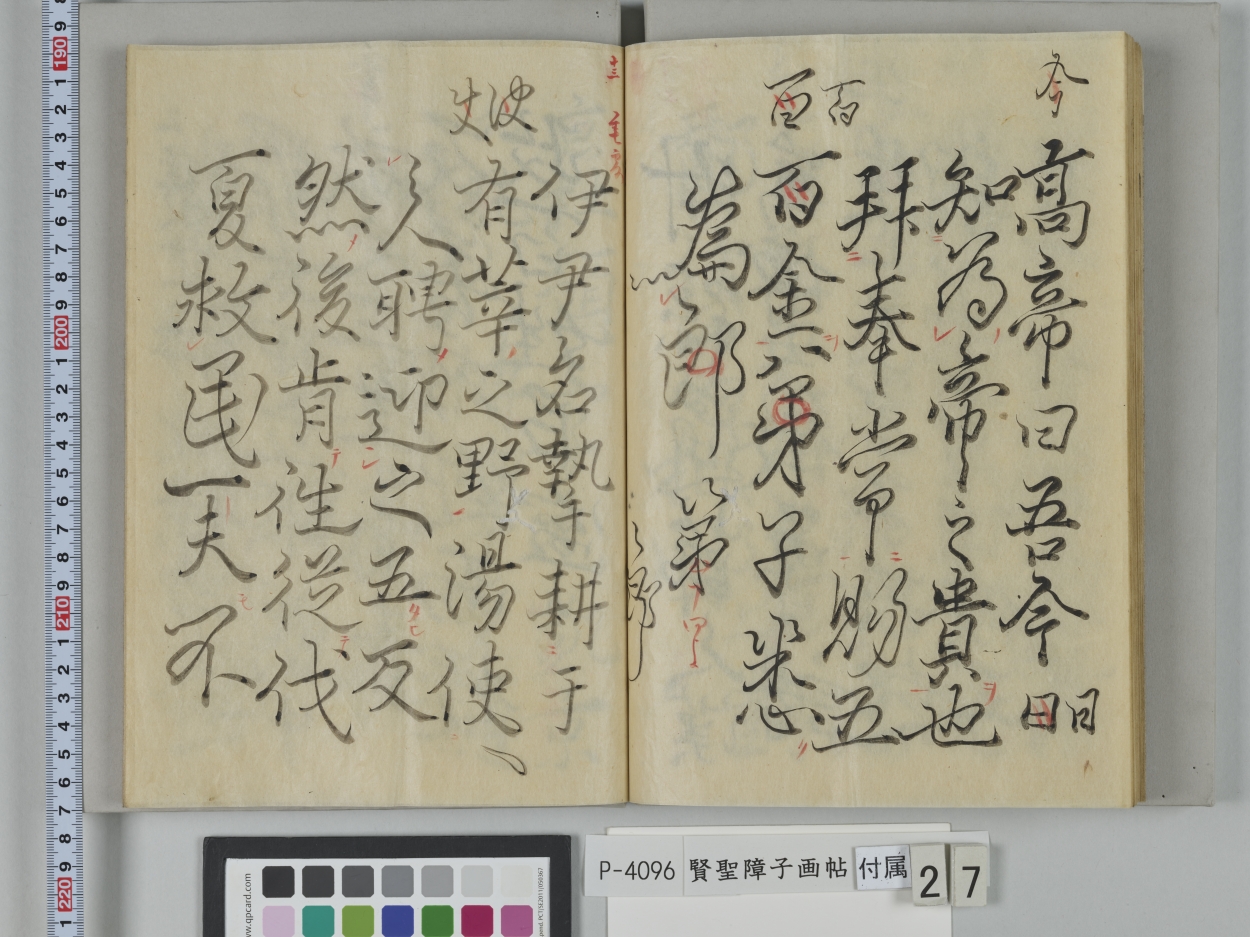 今
高帝曰吾今日日
知為帝之貴也
拜奉常賜五
百
百金 弟子悉
為以郎 弟
伊尹名摯耕于
有莘之野湯使
人聘迎之五反
然後肯往從伐
夏救民一夫不
P-4096 賢聖障子画帖 付属 27